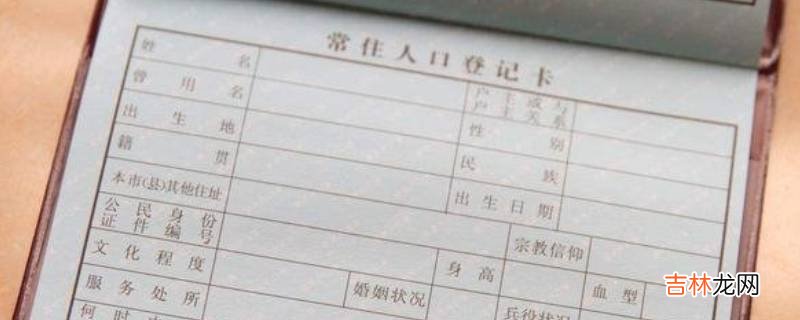 常住人口登记卡
姓名 户主或与户主关系
曾用名 性别
出生地 民族
籍贯 出生日期
本市(县)其他住址 宗教信仰
公民身份证件编号 身高 血型
文化程度 婚姻状况 兵役状况
服务处所
何时由
吉林龙网